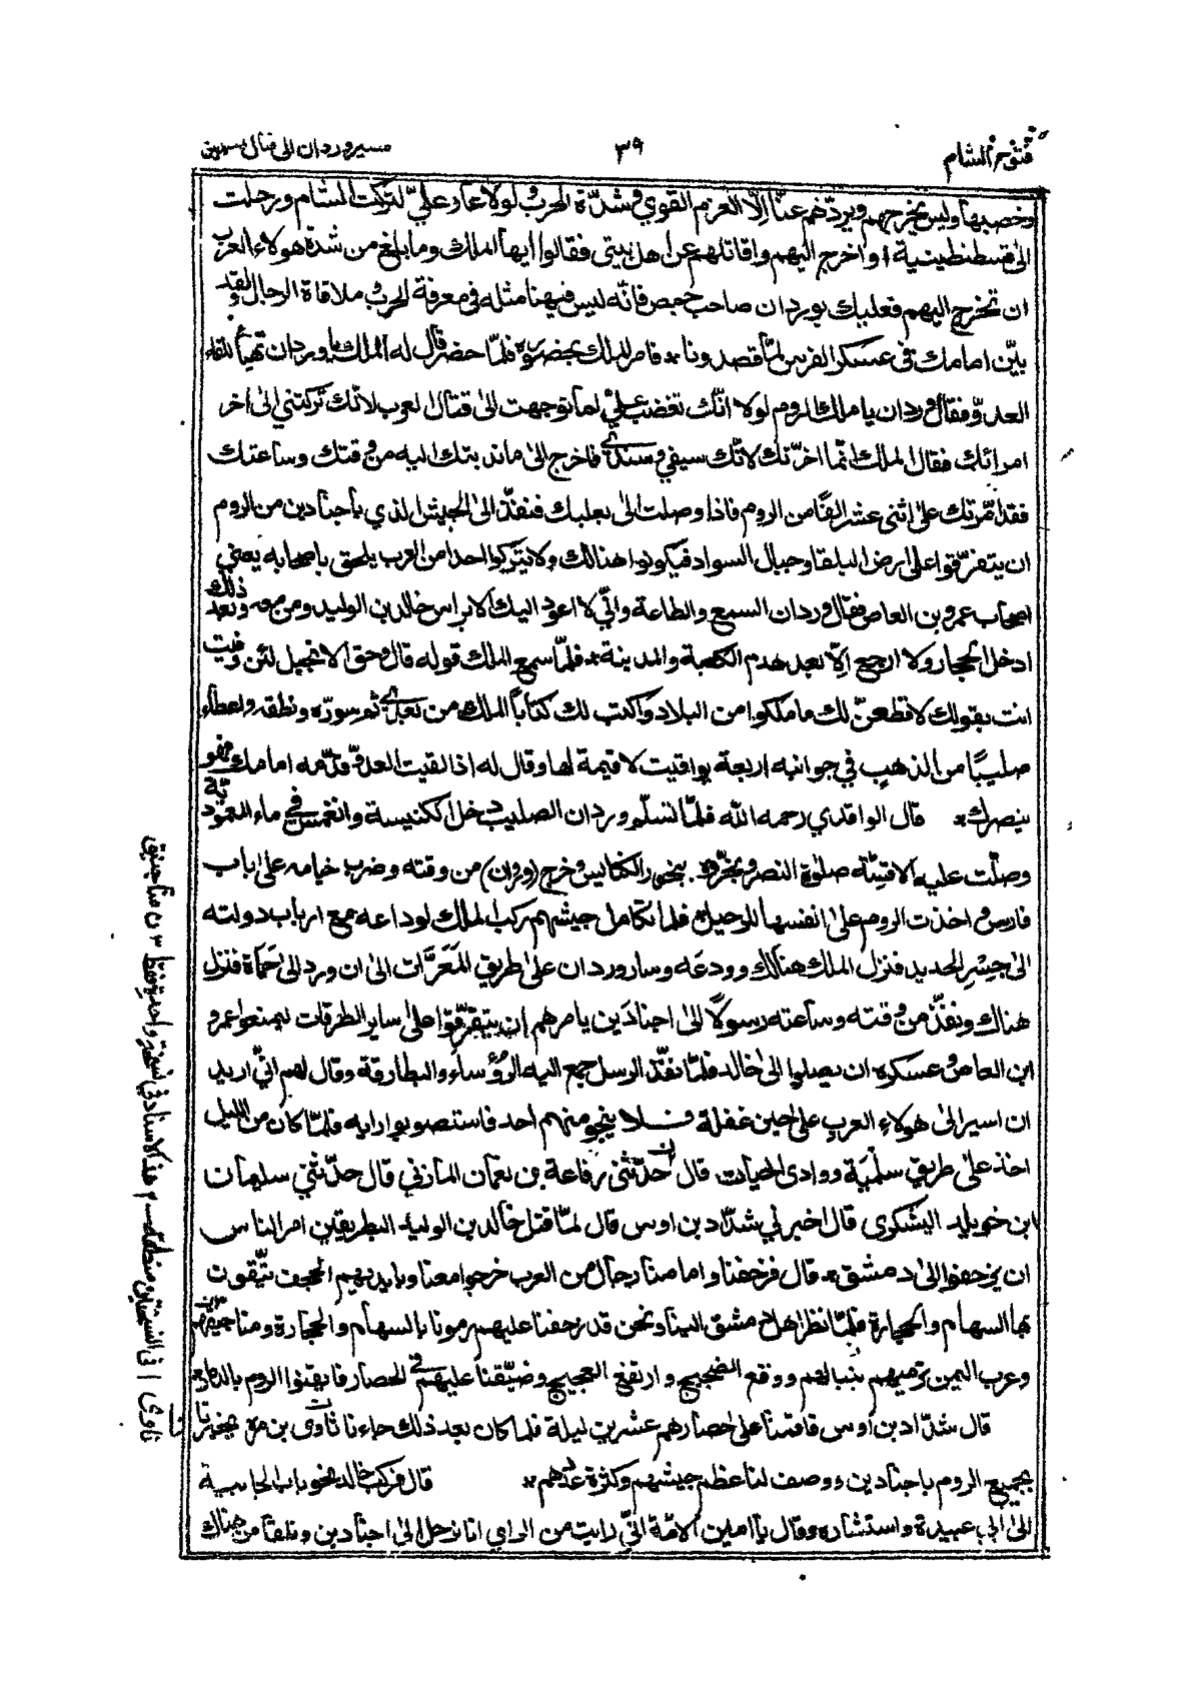 فتوح الشام
٣٩
مسير وردان الى قتال المسلمين
وخصبها وليس يخرجهم ويردّهم عنّا اِلّا العزم القوي وشدّة الحرب ولولا عار عليّ لتركت الشام ورحلت
الى قسطنطينية او اخرج اليهم واقاتلهم عن اهل بيتي فقالوا ايها الملك وما بلغ من شدة هولاء العرب
ان تخرج اليهم فعليك بوردان صاحب حمص فانّه ليس فيهنا مثله في معرفة الحرب وملاقاة الرجال ولقد
بيّن امامك في عسكر الفرس لمّا قصدونا * فامر الملك بحضوره فلمّا حضر قال له الملك يا وردان تهيأ للقاء
العدوّ فقال وردان يا ملك الروم لولا انّك تغضب عليّ لما توجهت الى قتال العرب لانّك تركتني الى آخر
امرائك فقال الملك انّما اخرّتك لانّك سيفي وسندي فاخرج الى ما ندبتك اليه من وقتك وساعتك
فقد امّرتك على اثنى عشر الفًا من الروم فاذا وصلت الى بعلبك فنفّذ الى الجيش الذي باجنادين من الروم
ان يتفرّقوا على ارض البلقا وجبال السواد فيكونوا هنالك ولا يتركوا احدا من العرب يلحق باصحابه يعني
اصحاب عمرو بن العاص فقال وردان السمع والطاعة وانّي لا اعود اليك الا براس خالد بن الوليد ومن معه وبعد ذلك
ادخل الحجاز ولا ارجع اِلّا بعد هدم الكعبة والمدينة * فلمّا سمع الملك قوله قال وحق الانجيل لئن وفيت
انت بقولك لاقطعنّ لك ما ملكوا من البلاد واكتب لك كتابًا الملك من بعدي ثم سورّه ونطقه واعطاه
صليبًا من الذهب في جوانبه اربعة يواقيت لا قيمة لها وقال له اذا لقيت العدو قدّمه امامك فهو
ينصرك * قال الواقدي رحمه الله فلمّا تسلّم وردان الصليب دخل الكنيسة وانغمس في ماء المعمودية
وصلّت عليه الاقسّة صلوة النصر وبخّروه ببخور الكنايس وخرج (وردان) من وقته وضرب خيامه على باب
فارس واخذت الروم على انفسها للرحيل فلما تكامل جيشهم ركب الملك لوداعه مع ارباب دولته
الى جسر الحديد فنزل الملك هنالك وودعه وسار وردان على طريق المَعَرّات الى ان ورد الى حماة فنزل
هناك ونفّذ من وقته وساعته رسولًا الى اجنادين يامرهم ان يتفرّقوا على ساير الطرقات ليمنعوا عمرو
ابن العاص وعسكره ان يصلوا الى خالد فلمّا نفّذ الرسل جمع اليه الرؤساء والبطارقة وقال لهم انّي اريد
ان اسير الى هولاء العرب على حين غفلة فلا ينجو منهم احد فاستصوبوا رايه فلمّا كان من الليل
اخذ على طريق سلمية ووادى الحيات قال حدّثني رفاعة بن نعمان المازني قال حدّثني سليمان
ابن خويلد اليشكري قال اخبرني شدّاد بن اوس قال لمّا قتل خالد بن الوليد البطريقين امر الناس
ان يزحفوا الى دمشق * قال فزحفنا وامامنا رجال من العرب خرجوا معنا وبايديهم الحجف يتّقون
بها السهام والحجارة فلمّا نظر اهل دمشق الينا ونحن قد زحفنا عليهم رمونا بالسهام والحجارة ومناجيقهم
وعرب اليمن ترميهم بنبالهم ووقع الضجيج وارتفع العجيج وضيّقنا عليهم في الحصار فايقنوا الروم بالدمار
قال شدّاد بن اوس فاقمنا على حصارهم عشرين ليلة فلما كان بعد ذلك جاءنا ناوى بن مرة يخبرنا
بجميع الروم باجنادين ووصف لنا عظم جيشهم وكثرة عددهم * قال فركب خالد نحو باب الجابية
الى ابي عبيدة واستشاره وقال يا امين الامّة انّي رايت من الراي انا نرحل الى اجنادين ونلقا من هناك
ناوى ١ في النسختين ٢ هذا الاسناد في نسخة واحدة فقط ٣ ن مناجنيق